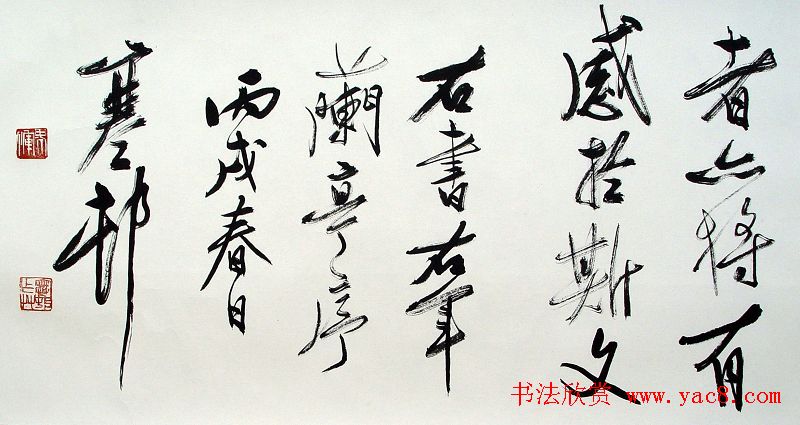 者亦将有
感於斯文
右書右軍
蘭亭序
丙戌春日
寒邨
书法欣赏 www.yac8.com